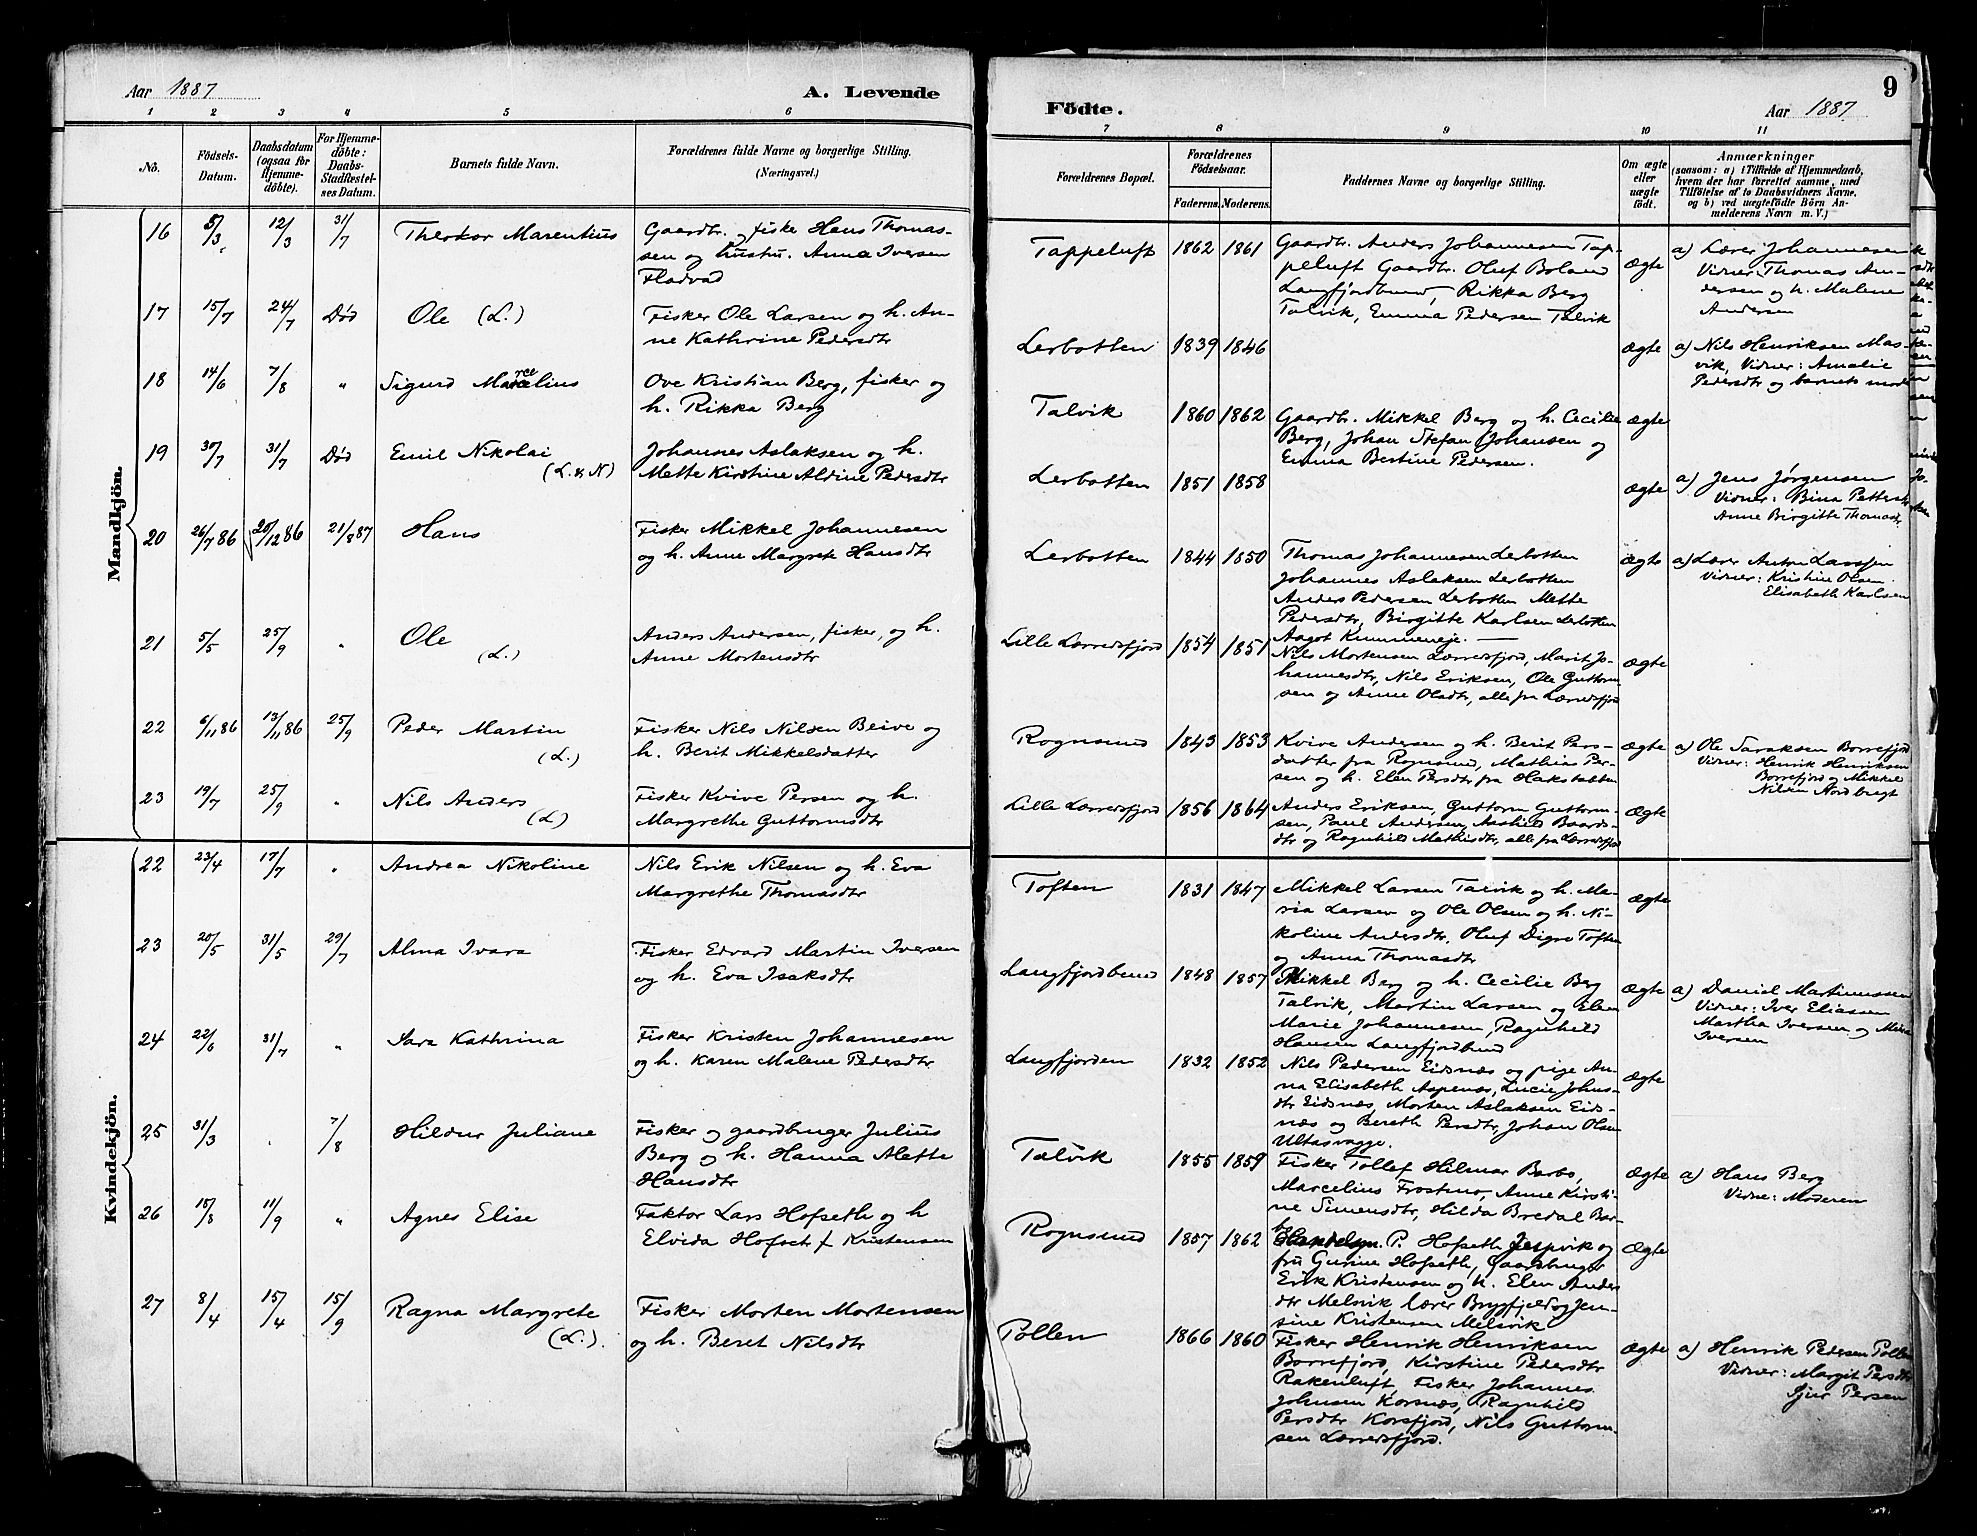 Aar 1887
A. Levende
1 2 3 4 5 6
No.
Födsels-
Datum.
Daabsdatum
(ogsaa for
Hjemme-
döbte).
For Hjemme-
döbte:
Daabs-
Stadfæstel-
ses Datum.
Barnets fulde Navn.
Forældrenes fulde Navne og borgerlige Stilling.
(Næringsvei.)
Mandkjön.
16 8/3 12/3 31/7 Theodor Marentius Gaardbr. og fisker Hans Thomas-
sen og hustru. Anna Iversen
Fladvad
17 15/7 24/7 Död Ole (L.) Fisker Ole Larsen og h. An-
ne Kathrine Pedersdtr
18 14/6 7/8 " Sigurd Marcelius Ove Kristian Berg, fisker og
h. Rikka Berg
19 30/7 31/7 Död Emil Nikolai (L. & N) Johannes Aslaksen og h.
Mette Kirstine Aldine Pedersdtr
20 26/7 86 20/12 86 21/8 87 Hans Fisker Mikkel Johannesen
og h. Anne Margrete Hansdtr
21 5/5 25/9 " Ole (L.) Anders Andersen, fisker, og h.
Anne Mortensdtr
22 6/11 86 13/11 86 25/9 Peder Martin (L.) Fisker Nils Nilsen Beive og
h. Berit Mikkelsdatter
23 19/7 25/9 " Nils Anders (L) Fisker Kvive Persen og h.
Margrethe Guttormsdtr
Kvindekjön.
22 23/4 17/7 " Andrea Nikoline Nils Erik Nilsen og h. Eva
Margrethe Thomasdtr
23 20/5 31/5 29/7 Alma Ivara Fisker Edvard Martin Iversen
og h. Eva Isaksdtr
24 22/6 31/7 " Sara Kathrina Fisker Kristen Johannesen
og h. Karen Malene Pedersdtr
25 31/3 . 7/8 Hildur Juliane Fisker og gaardbruger Julius
Berg og h. Hanna Alette
Hansdtr
26 18/8 11/9 " Agnes Elise Faktor Lars Hofseth og h
Elvida Hofset f Kristensen
27 8/4 15/4 15/9 Ragna Margrete (L.). Fisker Morten Mortensen
og h. Beret Nilsdtr
Födte.
Aar 1887
9
7 8 9 10 11
Forældrenes Bopæl.
Forældrenes
Födselsaar.
Faderens. Moderens.
Faddernes Navne og borgerlige Stilling.
Om ægte
eller
uægte
födt.
Anmærkninger
(saasom: a) i Tilfælde af Hjemmedaab,
hvem der har forrettet samme, med
Tilföielse af to Daabsvidners Navne,
og b) ved uægtefödte Börn An-
melderens Navn m. V.)
Tappeluft 1862 1861 Gaardbr. Anders Johannesen Tap-
peluft Gaardbr. Oluf Boland
Langfjordbund, Rikka Berg
Talvik, Emma Pedersen Talvik
ægte
a) Lærer Johannesen
Vidner: Thomas An-
dersen og h. Malene
Andersen
Lerbotten 1839 1846 ægte
a) Nils Henriksen Mas-
vik, Vidner: Amalie
Pedersdtr og barnets moder
Talvik 1860 1862 Gaardbr. Mikkel Berg og h. Cecilie
Berg, Johan Stefan Johansen og
Emma Bertine Pedersen.
ægte
Lerbotten 1851 1858 ægte
a) Jens Jørgensen
Vidner: Bina Petters
Anne Birgitte Thomasdtr
Lerbotten 1844 1850 Thomas Johannesen Lerbotten
Johannes Aslaksen Lerbotten
Anders Pedersen Lerbotten Mette
Pedersdtr, Birgitte Karlsen Lerbotten
Aagot Kummeneje. —
ægte
a) Lærer Anton Larssen
Vidner: Kristine Olsen.
Elisabeth Karlsen
Lille Lerredsfjord 1854 1851 Nils Mortensen Lærredsfjord, Marit Jo-
hannesdtr, Nils Eriksen, Ole Guttorm-
sen og Anne Olsdtr, alle fra Lærredsfjord
ægte
Rognsund 1843 1853 Kvive Andersen og h. Berit Pers-
datter fra Rognsund, Mathias Per-
sen og h. Elen Persdtr fra Hakstabben
ægte
a) Ole Saraksen Borrefjord
Vidner: Henrik Henriksen
Borrefjord og Mikkel
Nilsen Nordbugt
Lille Lerredsfjord 1856 1864 Anders Eriksen, Guttorm Guttorm-
sen, Paul Andersen, Aashild Baards-
dtr og Ragnhild Mathisdtr, alle fra Lærredsfjord
ægte
Toften 1831 1847 Mikkel Larsen Talvik og h. Ma-
ria Larsen og Ole Olsen og h. Ni-
koline Andersdtr, Oluf Digre Toften
og Anna Thomasdtr
ægte
Langfjordbund 1848 1857 Mikkel Berg og h. Cecilie Berg
Talvik, Martin Larsen og Elen
Marie Johannesen, Ragnhild
Hansen Langfjordbund
Ægte
a) Daniel Martinussen
Vidner: Iver Eliassen
Martha Iversen og
Iversen
Langfjorden 1832 1852 Nils Pedersen Eidsnæs og pige An-
na Elisabeth Aspenæs, Lucie Johns-
dtr Eidsnæs, Morten Aslaksen Eids-
næs og Bereth Persdtr, Johan Olsen
Ultasvagge.
ægte
Talvik 1855 1859 Fisker Tollef Hilmar Barbo,
Marcelius Frostmo, Anne Kirsti-
ne Simensdtr, Hilda Bredal Bar-
bo
ægte
a) Hans Berg
Vidne: Moderen
Rognsund 1857 1862 Handelsm. P. Hofseth Jespvik og
fru Gurine Hofseth, Gaardbruger
Erik Kristensen og h. Elen Anders
dtr Melsvik lærer Brygfjeld og Jen-
sine Kristensen Melsvik
Ægte
Pollen 1866 1860 Fisker Henrik Henriksen
Borrefjord, Kirstine Pedersdtr
Rakenluft, Fisker Johannes
Johnsen Korsnæs, Ragnhild
Persdtr Korsfjord, Nils Guttorm-
sen Lærredsfjord.
ægte
a) Henrik Pedersen Pollen
Vidner: Margit Persdtr
Gjur Persen